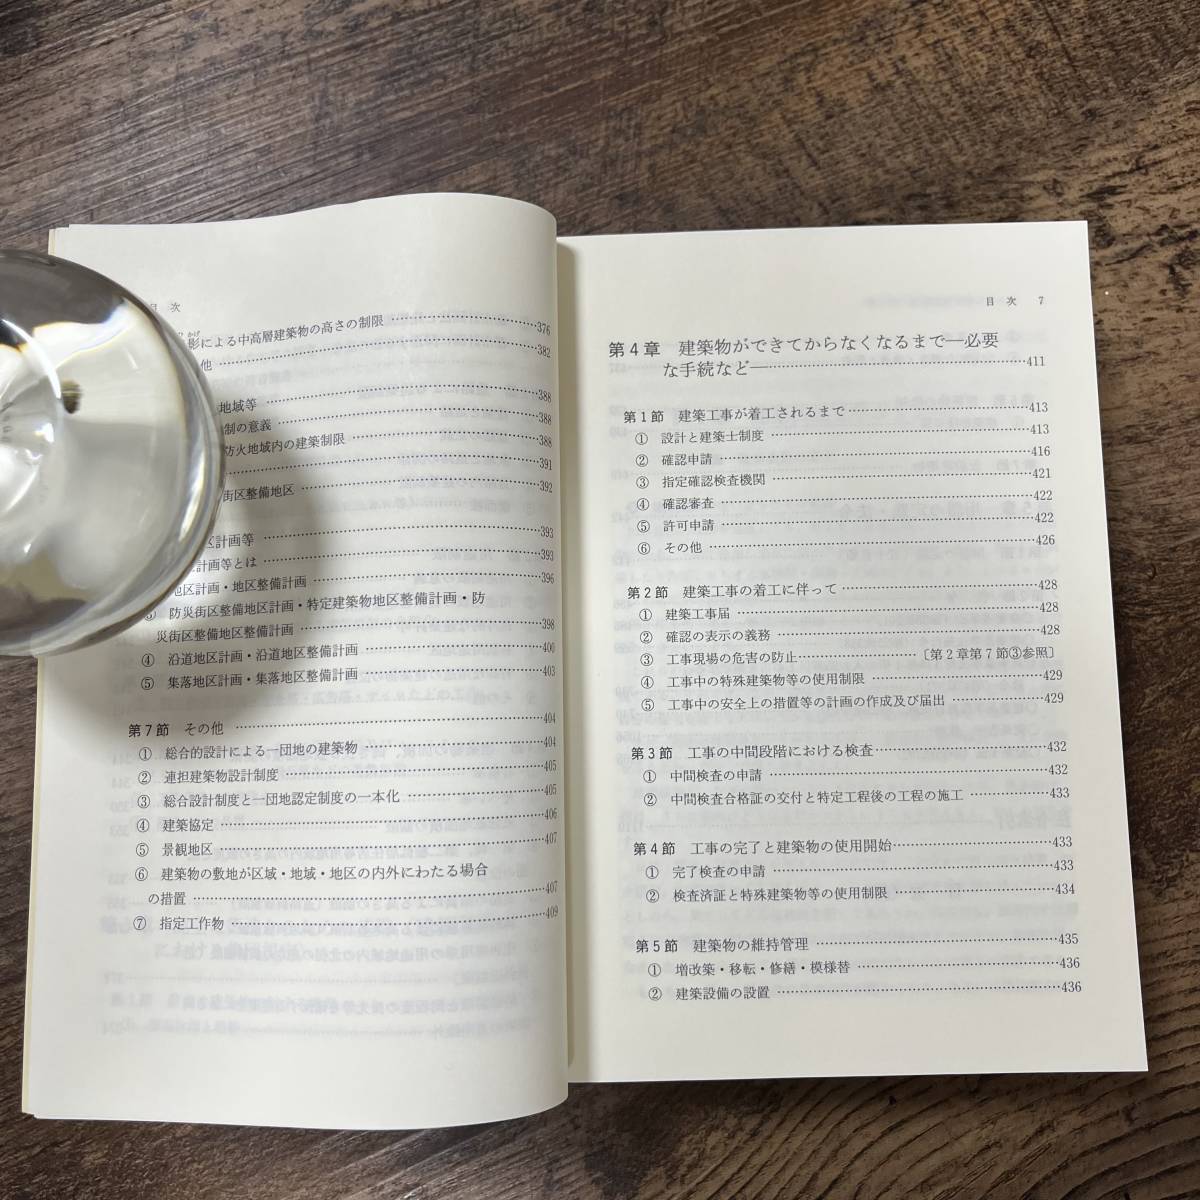 目 次
かげ
影による中高層建築物の高さの制限 376
他 382
地域等 388
制の意義 388
防火地域内の建築制限 388
391
街区整備地区 392
393
区計画等 393
計画等とは 396
地区計画・地区整備計画
③ 防災街区整備地区計画・特定建築物地区整備計画・防
災街区整備地区整備計画 398
④ 沿道地区計画・沿道地区整備計画 400
⑤ 集落地区計画・集落地区整備計画 403
第7節 その他 404
① 総合的設計による一団地の建築物 404
② 連担建築物設計制度 405
③ 総合設計制度と一団地認定制度の一本化 405
④ 建築協定 406
⑤ 景観地区 407
⑥ 建築物の敷地が区域・地域・地区の内外にわたる場合
の措置 407
⑦ 指定工作物 409
目 次 7
第4章 建築物ができてからなくなるまで―必要
な手続など― 411
第1節 建築工事が着工されるまで 413
① 設計と建築士制度 413
② 確認申請 416
③ 指定確認検査機関 421
④ 確認審査 422
⑤ 許可申請 422
⑥ その他 426
第2節 建築工事の着工に伴って 428
① 建築工事届 428
② 確認の表示の義務 428
③ 工事現場の危害の防止 〔第2章第7節③参照〕
④ 工事中の特殊建築物等の使用制限 429
⑤ 工事中の安全上の措置等の計画の作成及び届出 429
第3節 工事の中間段階における検査 432
① 中間検査の申請 432
② 中間検査合格証の交付と特定工程後の工程の施工 433
第4節 工事の完了と建築物の使用開始 433
① 完了検査の申請 433
② 検査済証と特殊建築物等の使用制限 434
第5節 建築物の維持管理 435
① 増改築・移転・修繕・模様替 436
② 建築設備の設置 436